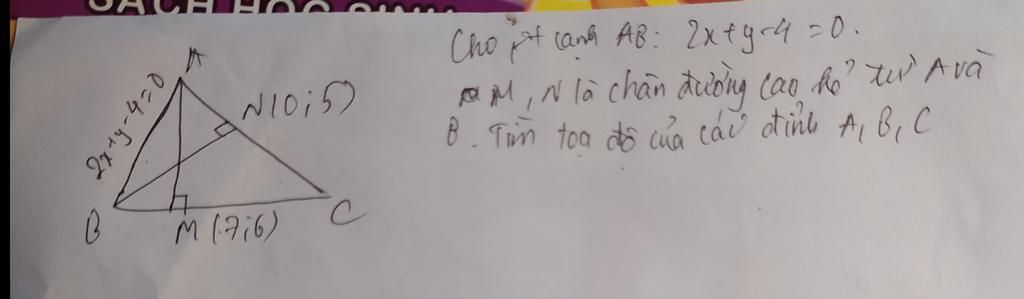 SÁCH HỌC SINH
A
Cho pt cạnh AB: 2x+y-4=0.
N(0;5)
M, N là chân đường cao hạ từ A và
2x+y-4=0
B. Tìm toạ độ của các đỉnh A, B, C
B
M(-7;6)
C